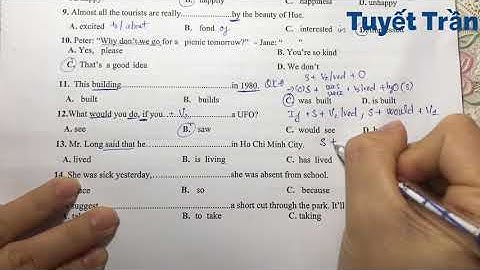 A. excited to/about B. happiness C. happily D. unhappy
9. Almost all the tourists are really............by the beauty of Hue.
Tuyết Trần
B. fond of C. interested in D. impressed
10. Peter: "Why don't we go for a picnic tomorrow?" - Jane: "
A. Yes, please B. You're so kind
C. That's a good idea D. We don't
S + V2/ved + O
11. This building..............................in 1980.
A. built B. builds C. was built D. is built
12. What would you do, if you............a UFO? If + S + V2/ved, S + would + V1
A. see B. saw C. would see
13. Mr. Long said that he....................in Ho Chi Minh City. S +
A. lived B. is living C. has lived
14. She was sick yesterday,....................she was absent from school.
B. so C. because
suggest............................a short cut through the park. It'll
B. to take C. taking